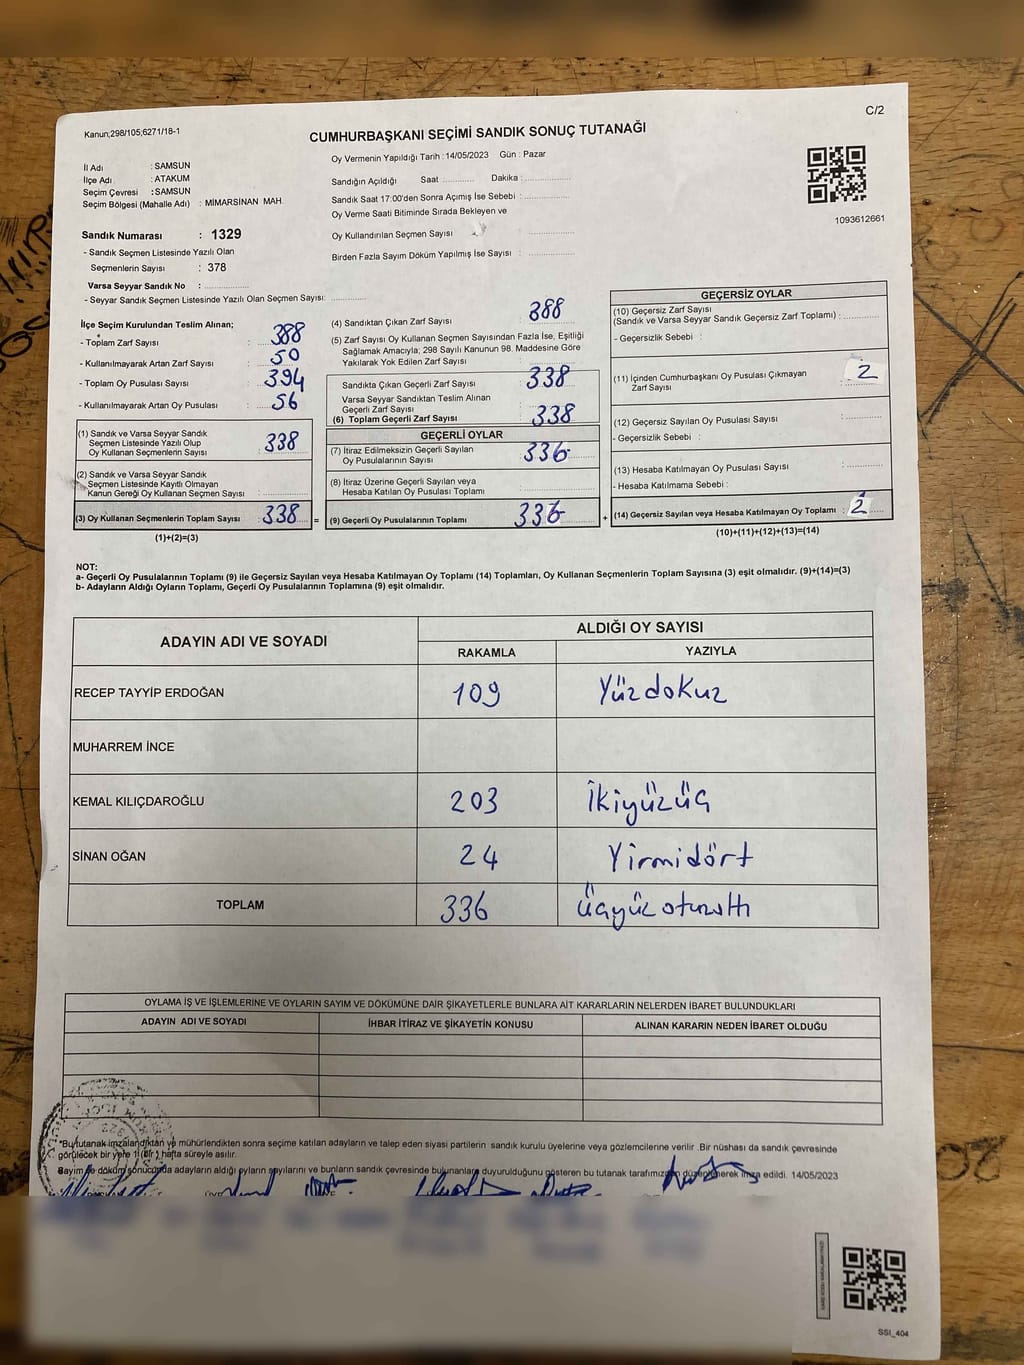 C/2
Kanun;298/105;6271/18-1
CUMHURBAŞKANI SEÇİMİ SANDIK SONUÇ TUTANAĞI
İl Adı : SAMSUN
İlçe Adı : ATAKUM
Seçim Çevresi : SAMSUN
Seçim Bölgesi (Mahalle Adı) : MİMARSİNAN MAH.
Oy Vermenin Yapıldığı Tarih : 14/05/2023 Gün : Pazar
Sandığın Açıldığı Saat : Dakika :
Sandık Saat 17.00'den Sonra Açımış İse Sebebi :
Oy Verme Saati Bitiminde Sırada Bekleyen ve
Oy Kullandırılan Seçmen Sayısı :
Birden Fazla Sayım Döküm Yapılmış İse Sayısı :
1093612661
Sandık Numarası : 1329
- Sandık Seçmen Listesinde Yazılı Olan
Seçmenlerin Sayısı : 378
Varsa Seyyar Sandık No :
- Seyyar Sandık Seçmen Listesinde Yazılı Olan Seçmen Sayısı:
İlçe Seçim Kurulundan Teslim Alınan;
- Toplam Zarf Sayısı : 388
- Kullanılmayarak Artan Zarf Sayısı : 50
- Toplam Oy Pusulası Sayısı : 394
- Kullanılmayarak Artan Oy Pusulası : 56
(1) Sandık ve Varsa Seyyar Sandık
Seçmen Listesinde Yazılı Olup
Oy Kullanan Seçmenlerin Sayısı : 338
(2) Sandık ve Varsa Seyyar Sandık
Seçmen Listesinde Kayıtlı Olmayan
Kanun Gereği Oy Kullanan Seçmen Sayısı :
(3) Oy Kullanan Seçmenlerin Toplam Sayısı : 338 =
(1)+(2)=(3)
(4) Sandıktan Çıkan Zarf Sayısı : 388
(5) Zarf Sayısı Oy Kullanan Seçmen Sayısından Fazla İse, Eşitliği
Sağlamak Amacıyla; 298 Sayılı Kanunun 98. Maddesine Göre
Yakılarak Yok Edilen Zarf Sayısı :
Sandıkta Çıkan Geçerli Zarf Sayısı : 338
Varsa Seyyar Sandıktan Teslim Alınan
Geçerli Zarf Sayısı :
(6) Toplam Geçerli Zarf Sayısı : 338
GEÇERLİ OYLAR
(7) İtiraz Edilmeksizin Geçerli Sayılan
Oy Pusulalarının Sayısı : 336
(8) İtiraz Üzerine Geçerli Sayılan veya
Hesaba Katılan Oy Pusulası Toplamı :
(9) Geçerli Oy Pusulalarının Toplamı : 336 +
GEÇERSİZ OYLAR
(10) Geçersiz Zarf Sayısı
(Sandık ve Varsa Seyyar Sandık Geçersiz Zarf Toplamı) :
- Geçersizlik Sebebi :
(11) İçinden Cumhurbaşkanı Oy Pusulası Çıkmayan
Zarf Sayısı : 2
(12) Geçersiz Sayılan Oy Pusulası Sayısı :
- Geçersizlik Sebebi :
(13) Hesaba Katılmayan Oy Pusulası Sayısı :
- Hesaba Katılmama Sebebi :
(14) Geçersiz Sayılan veya Hesaba Katılmayan Oy Toplamı : 2
(10)+(11)+(12)+(13)=(14)
NOT:
a- Geçerli Oy Pusulalarının Toplamı (9) ile Geçersiz Sayılan veya Hesaba Katılmayan Oy Toplamı (14) Toplamları, Oy Kullanan Seçmenlerin Toplam Sayısına (3) eşit olmalıdır. (9)+(14)=(3)
b- Adayların Aldığı Oyların Toplamı, Geçerli Oy Pusulalarının Toplamına (9) eşit olmalıdır.
ADAYIN ADI VE SOYADI
ALDIĞI OY SAYISI
RAKAMLA YAZIYLA
RECEP TAYYİP ERDOĞAN 109 Yüzdokuz
MUHARREM İNCE
KEMAL KILIÇDAROĞLU 203 İkiyüzüç
SİNAN OĞAN 24 Yirmidört
TOPLAM 336 üçyüz otuzaltı
OYLAMA İŞ VE İŞLEMLERİNE VE OYLARIN SAYIM VE DÖKÜMÜNE DAİR ŞİKAYETLERLE BUNLARA AİT KARARLARIN NELERDEN İBARET BULUNDUKLARI
ADAYIN ADI VE SOYADI İHBAR İTİRAZ VE ŞİKAYETİN KONUSU ALINAN KARARIN NEDEN İBARET OLDUĞU
*Bu tutanak imzalandıktan ve mühürlendikten sonra seçime katılan adayların ve talep eden siyasi partilerin sandık kurulu üyelerine veya gözlemcilerine verilir. Bir nüshası da sandık çevresinde
görülecek bir yere 1 (Bir) hafta süreyle asılır.
Sayım ve döküm sonucunda adayların aldığı oyların sayılarını ve bunların sandık çevresinde bulunanlara duyurulduğunu gösteren bu tutanak tarafımızdan düzenlenerek imza edildi. 14/05/2023
SSI_404